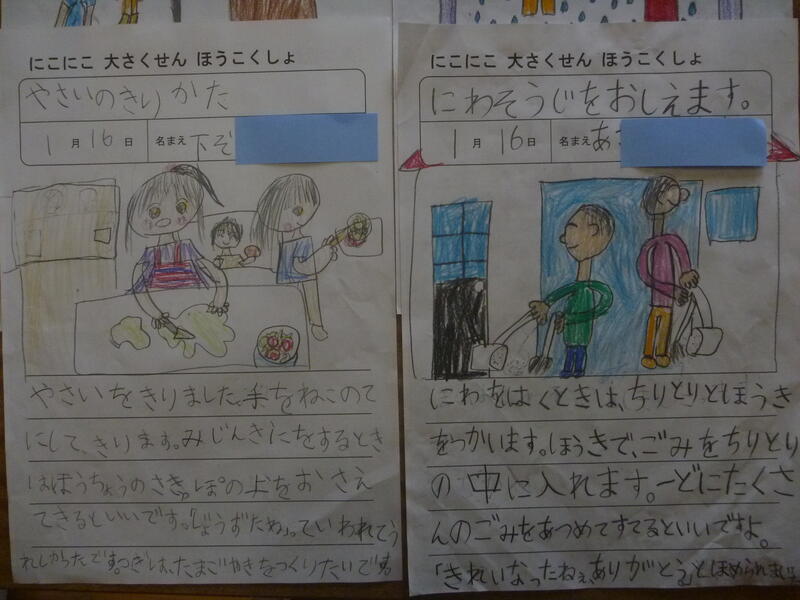 にこにこ 大さくせん ほうこくしょ
やさいのきりかた
1月16日 名まえ 下ぞ
やさいをきりました。手をねこのて
にして、きります。みじんぎりをするとき
はほうちょうのさきっぽの上をおさえ
てきるといいです。「じょうずだね」。っていわれてう
れしかったです。つぎは、たまごやきをつくりたいです
にこにこ 大さくせん ほうこくしょ
にわそうじをおしえます。
1月16日 名まえ あ
にわをはくときは、ちりとりとほうき
をつかいます。ほうきで、ごみをちりとり
の中に入れます。一どにたくさ
んのごみをあつめてすてるといいですよ。
「きれいなったねぇ、ありがとう」とほめられました